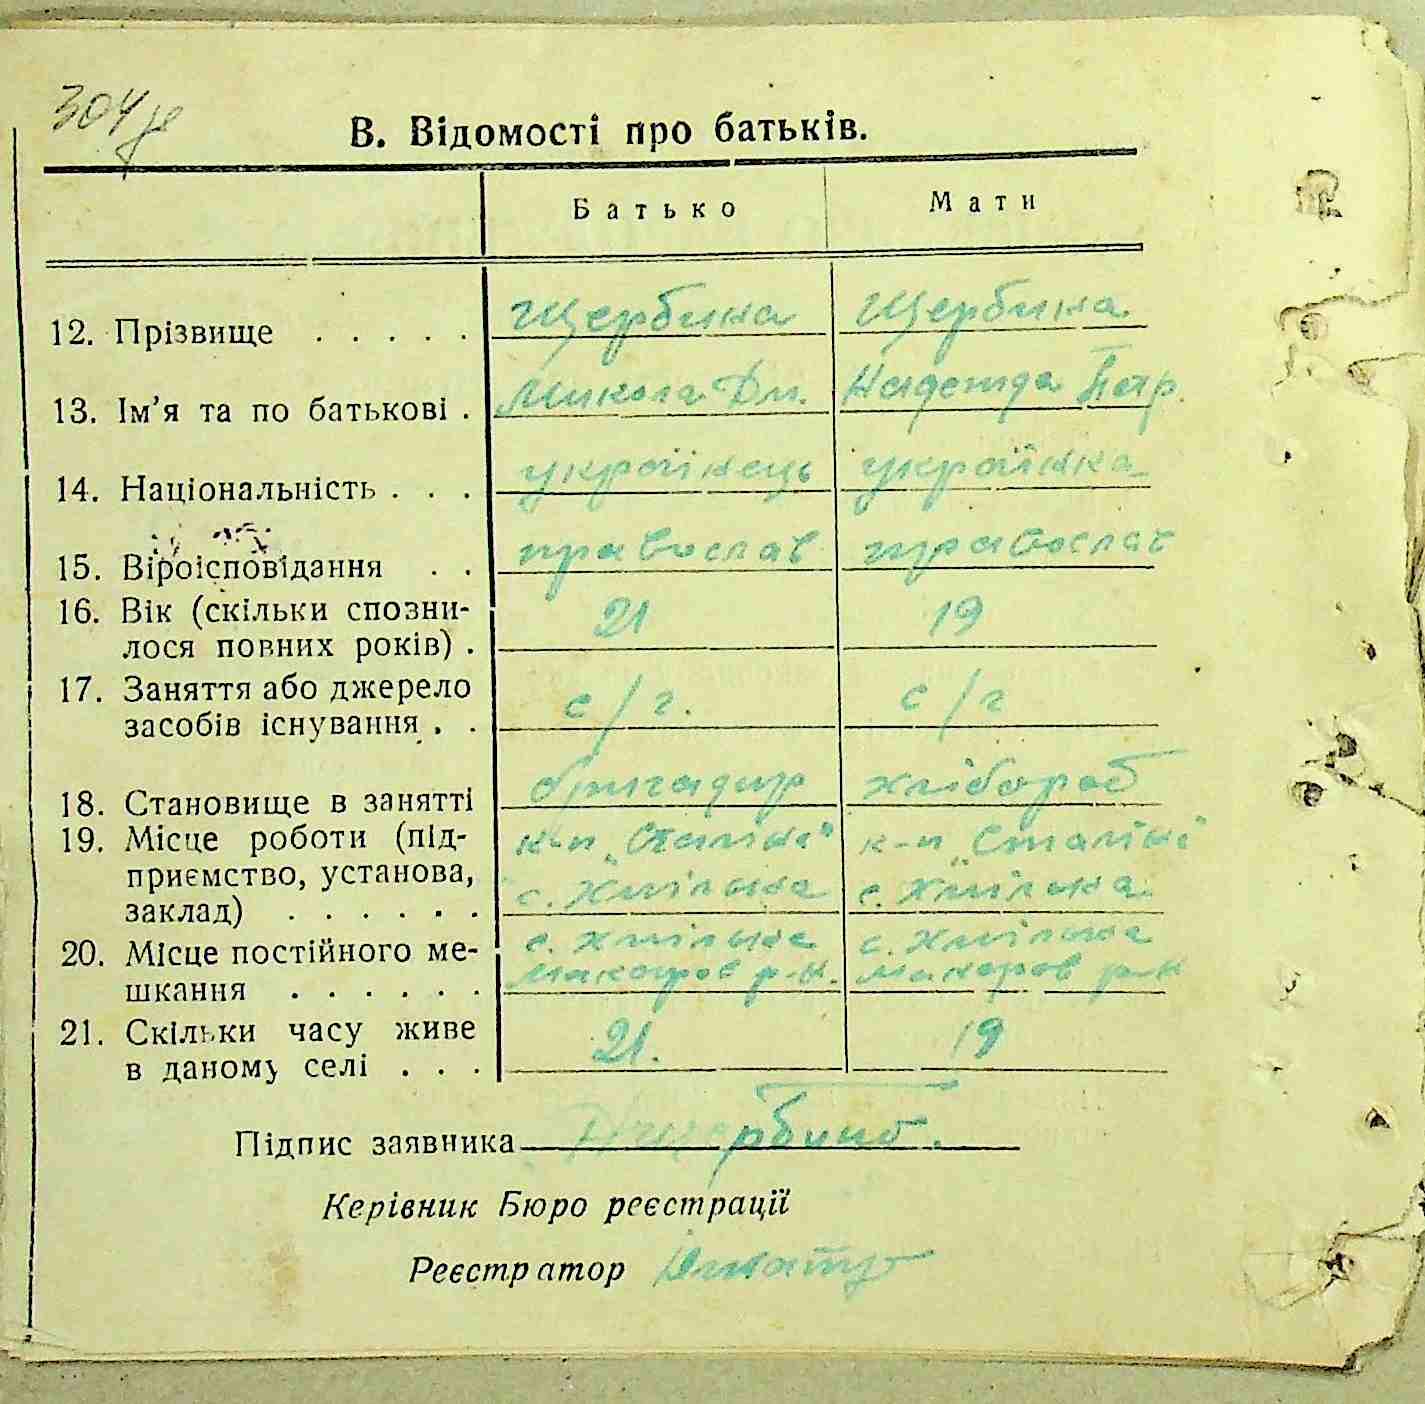 304
В. Відомості про батьків.
Батько Мати
12. Прізвище . . . . . Щербина Щербина
13. Ім'я та по батькові . Микола Дм. Надежда Петр.
14. Національність . . . українець українка
15. Віроісповідання . . православ православ
16. Вік (скільки спозни- 21 19
лося повних років) .
17. Заняття або джерело с/г. с/г
засобів існування . .
18. Становище в занятті бригадир хлібороб
19. Місце роботи (під- к-п „Сталіна" к-п „Сталіна"
приємство, установа, с. Хмільна с. Хмільна
заклад) . . . . . .
20. Місце постійного ме- с. Хмільна с. Хмільна
шкання . . . . . . Макаров р-н. Макаров р-н
21. Скільки часу живе 21. 19
в даному селі . . .
Підпис заявника
Керівник Бюро реєстрації
Реєстратор